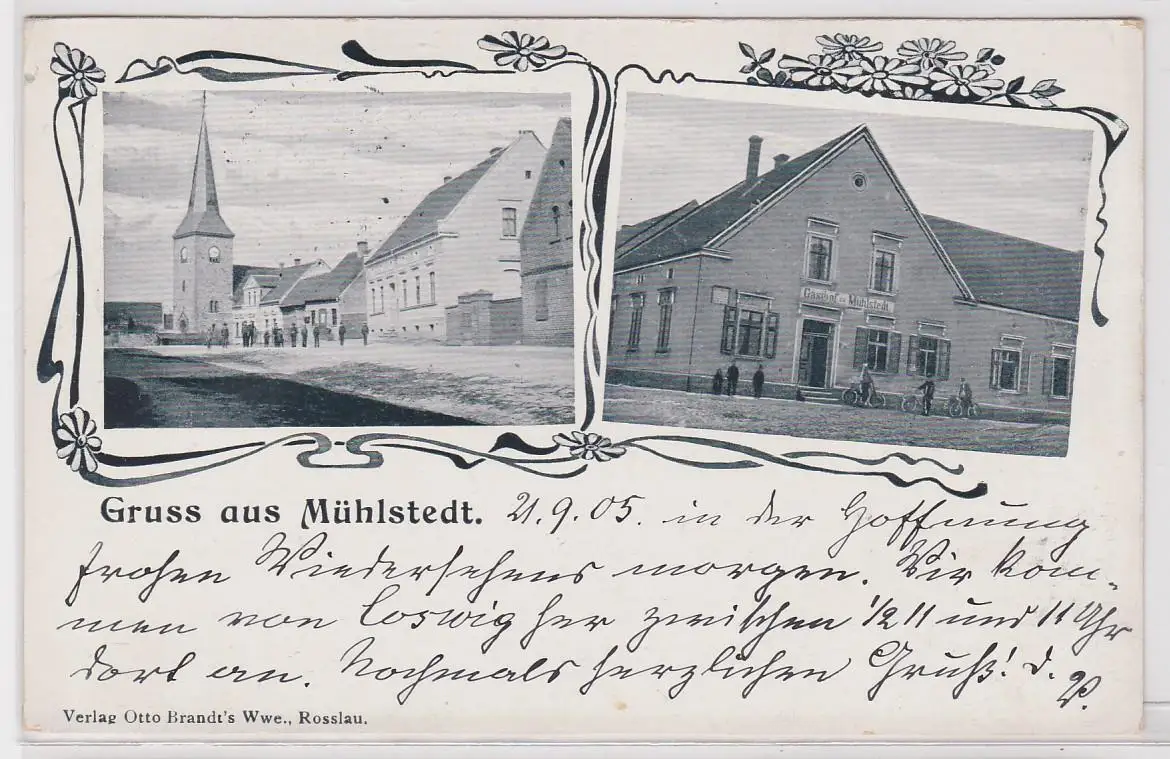 Gasthof zu Mühlstedt
Gruss aus Mühlstedt. 21.9.05. in der Hoffnung
frohen Wiedersehens morgen. Wir kom-
men von Coswig her zwischen 1/2 11 und 11 Uhr
dort an. Nochmals herzlichen Gruß! d.
P.
Verlag Otto Brandt's Wwe., Rosslau.